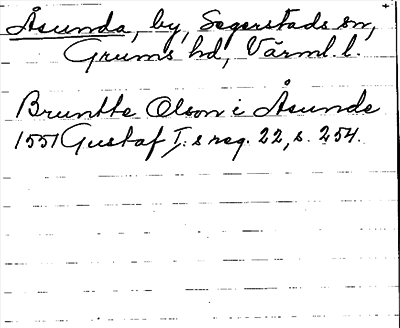 Åsunda, by, Segerstads sn,
Grums hd, Värml. l.
Bruntte Olson i Åsunde
1551 Gustaf I:s reg. 22, s. 254.